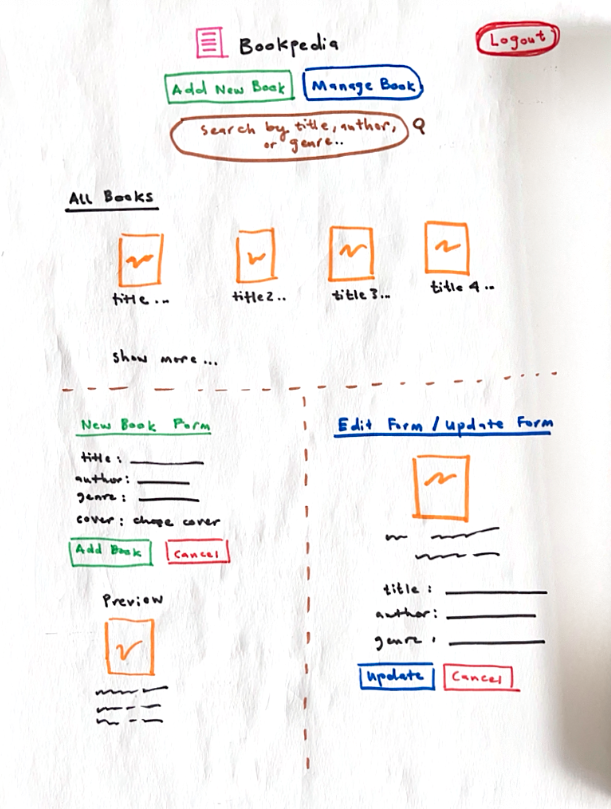 Bookpedia
Logout
Add New Book
Manage Book
Search by title, author,
or genre..
All Books
title ...
title 2..
title 3...
title 4...
show more ...
New Book Form
title :
author:
genre :
cover : choose cover
Add Book
Cancel
Preview
Edit Form / Update Form
title :
author:
genre :
Update
Cancel